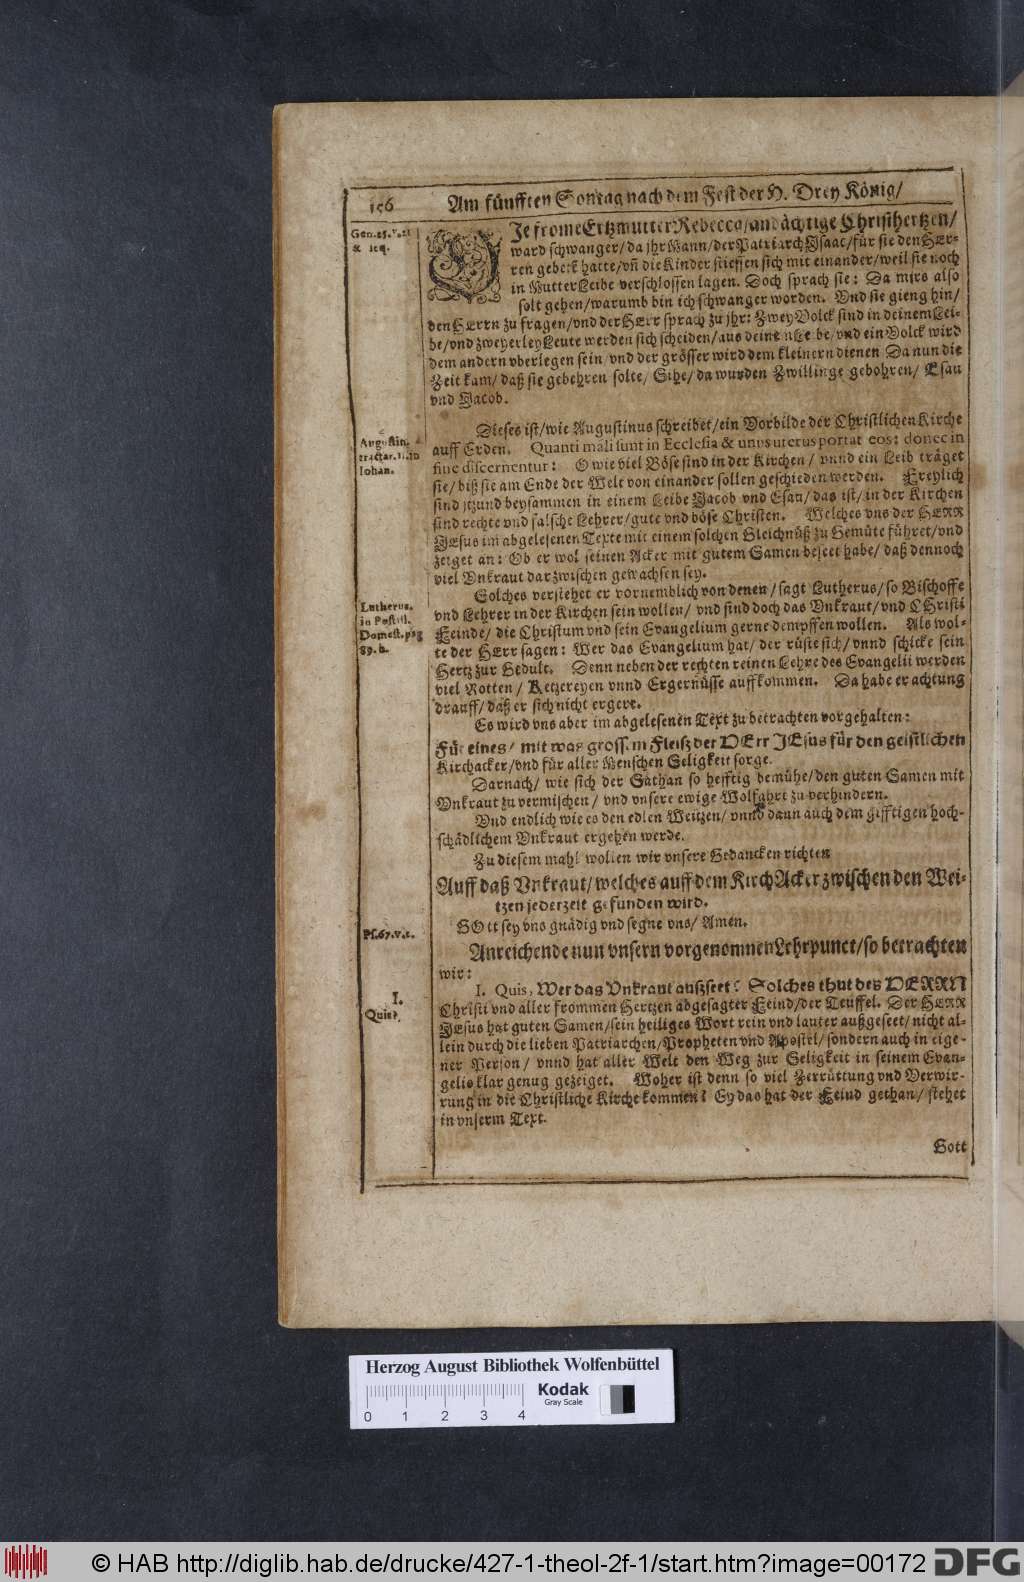 156
Am fünfften Sontag nach dem Fest der H. Drey König/
Gen. 25. v. 21
& seq.
DJe frome Ertzmutter Rebecca/andächtige Christhertzen/
ward schwanger/da jhr Mann/der Patriarch Jsaac/für sie den HEr-
ren gebetē hatte/vñ die Kinder stiessen sich mit einander/weil sie noch
in Mutter Leibe verschlossen lagen. Doch sprach sie: Da mirs also
solt gehen/warumb bin ich schwanger worden. Vnd sie gieng hin/
den HErrn zu fragen/vnd der HErr sprach zu jhr: Zwey Volck sind in deinem Lei-
be/vnd zweyerley Leute werden sich scheiden/aus deinem Leibe/vnd ein Volck wird
dem andern vberlegen sein/vnd der grösser wird dem kleinern dienen Da nun die
Zeit kam/daß sie gebehren solte/Sihe/da wurden Zwillinge gebohren/ Esau
vnd Jacob.
Augustin.
tractat. 11. in
Iohan.
Dieses ist/wie Augustinus schreibet/ein Vorbilde der Christlichen Kirche
auff Erden. Quanti mali sunt in Ecclesia & unus uterus portat eos: donec in
fine discernentur: O wie viel Böse sind in der Kirchen/ vnnd ein Leib träget
sie/biß sie am Ende der Welt von einander sollen geschieden werden. Freylich
sind jtzund beysammen in einem Leibe Jacob vnd Esau/das ist/in der Kirchen
sind rechte vnd falsche Lehrer/gute vnd böse Christen. Welches vns der HERR
JEsus im abgelesenen Texte mit einem solchen Gleichnüß zu Gemüte führet/vnd
zeiget an: Ob er wol seinen Acker mit gutem Samen beseet habe/ daß dennoch
viel Vnkraut darzwischen gewachsen sey.
Lutherus.
in Postill.
Domest. pag
89. b.
Solches verstehet er vornemblich von denen/sagt Lutherus/so Bischoffe
vnd Lehrer in der Kirchen sein wollen/ vnd sind doch das Vnkraut/vnd CHristi
Feinde/ die Christum vnd sein Evangelium gerne dempffen wollen. Als wol-
te der HErr sagen: Wer das Evangelium hat/ der rüste sich/ vnnd schicke sein
Hertz zur Gedult. Denn neben der rechten reinen Lehre des Evangelii werden
viel Rotten/ Ketzereyen vnnd Ergernüsse auffkommen. Da habe er achtung
drauff/ daß er sich nicht ergere.
Es wird vns aber im abgelesenen Text zu betrachten vorgehalten:
Für eines/ mit was grossem Fleisz der HErr JEsus für den geistlichen
Kirchacker/vnd für aller Menschen Seligkeit sorge.
Darnach/ wie sich der Sathan so hefftig bemühe/den guten Samen mit
Vnkraut zu vermischen/ vnd vnsere ewige Wolfahrt zu verhindern.
Vnd endlich wie es den edlen Weitzen/ vnnd dann auch dem gifftigen hoch-
schädlichem Vnkraut ergehen werde.
Zu diesem mahl wollen wir vnsere Gedancken richten
Auff daß Vnkraut/welches auff dem KirchAcker zwischen den Wei-
tzen jederzeit gefunden wird.
Ps. 67. v. 1.
GOtt sey vns gnädig vnd segne vns/ Amen.
Anreichende nun vnsern vorgenommen Lehrpunct/so betrachten
wir:
I.
Quis?
I. Quis, Wer das Vnkraut auszseet? Solches thut des HERRN
Christi vnd aller frommen Hertzen abgesagter Feind/der Teuffel. Der HERR
JEsus hat guten Samen/sein heiliges Wort rein vnd lauter außgeseet/nicht al-
lein durch die lieben Patriarchen/Propheten vnd Apostel/sondern auch in eige-
ner Person/ vnnd hat aller Welt den Weg zur Seligkeit in seinem Evan-
gelio klar genug gezeiget. Woher ist denn so viel Zerrüttung vnd Verwir-
rung in die Christliche Kirche kommen? Ey das hat der Feind gethan/ stehet
in vnserm Text.
Gott
Herzog August Bibliothek Wolfenbüttel
0 1 2 3 4
Kodak
Gray Scale
© HAB http://diglib.hab.de/drucke/427-1-theol-2f-1/start.htm?image=00172
DFG